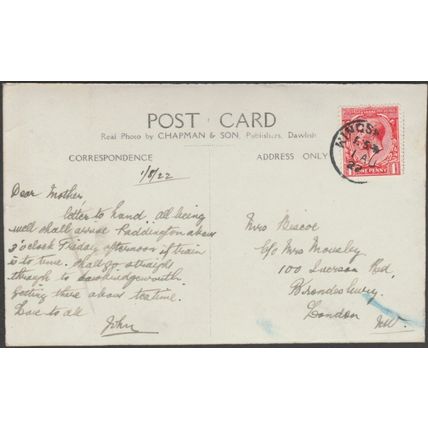 POST CARD
Real Photo by CHAPMAN & SON, Publishers, Dawlish
CORRESPONDENCE
ADDRESS ONLY
1/8/22
Dear Mother
letter to hand. All being
well shall arrive Paddington about
3 o'clock Friday afternoon if train
is to time. Shall go straight
through to Sawbridgeworth
getting there about teatime.
Love to all
John
Mrs Briscoe
c/o Mrs Mousley
100 Iverson Rd,
Brondesbury
London
NW
ONE PENNY
1 AU
22